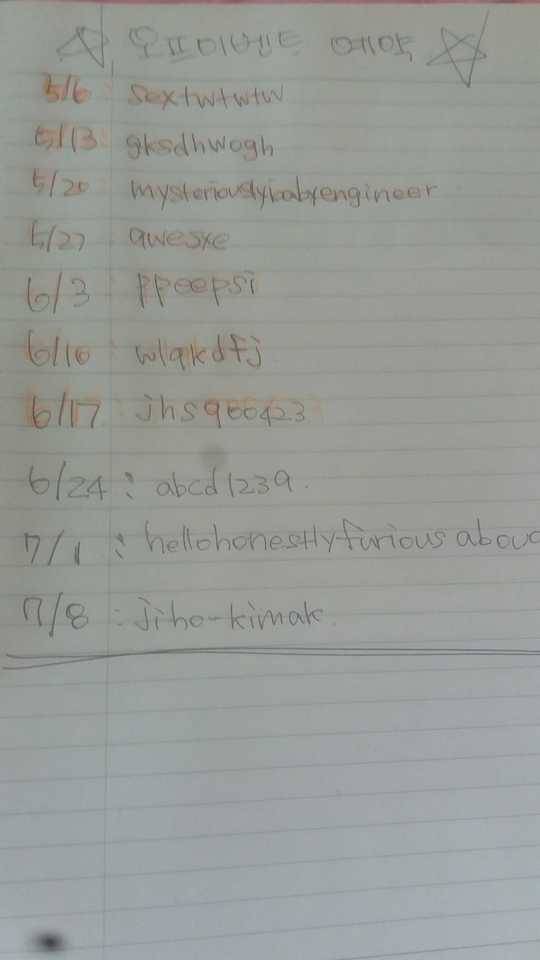 오프이벤트 예약
5/6 : sextwtwtw
5/13 : gksdhwogh
5/20
5/27 : qwesxe
6/3 : ppeepsi
6/10 : wlqkdfj
6/17 : jhs960423
6/24 : abcd1239.
7/1 : hellohonestlyfurious
7/8 : jiho-kimak.